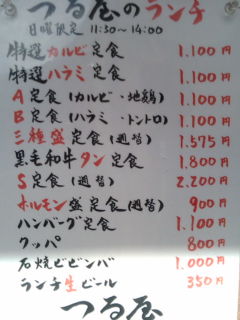 つる屋のランチ
日曜限定 11:30~14:00
特選カルビ定食 1.100円
特選ハラミ定食 1.100円
A定食(カルビ・地鶏) 1.100円
B定食(ハラミ・トントロ) 1.100円
三種盛定食(週替) 1.575円
黒毛和牛タン定食 1.800円
S定食(週替) 2.200円
ホルモン盛定食(週替) 900円
ハンバーグ定食 1.100円
クッパ 800円
石焼ビビンバ 1.000円
ランチ生ビール 350円
つる屋